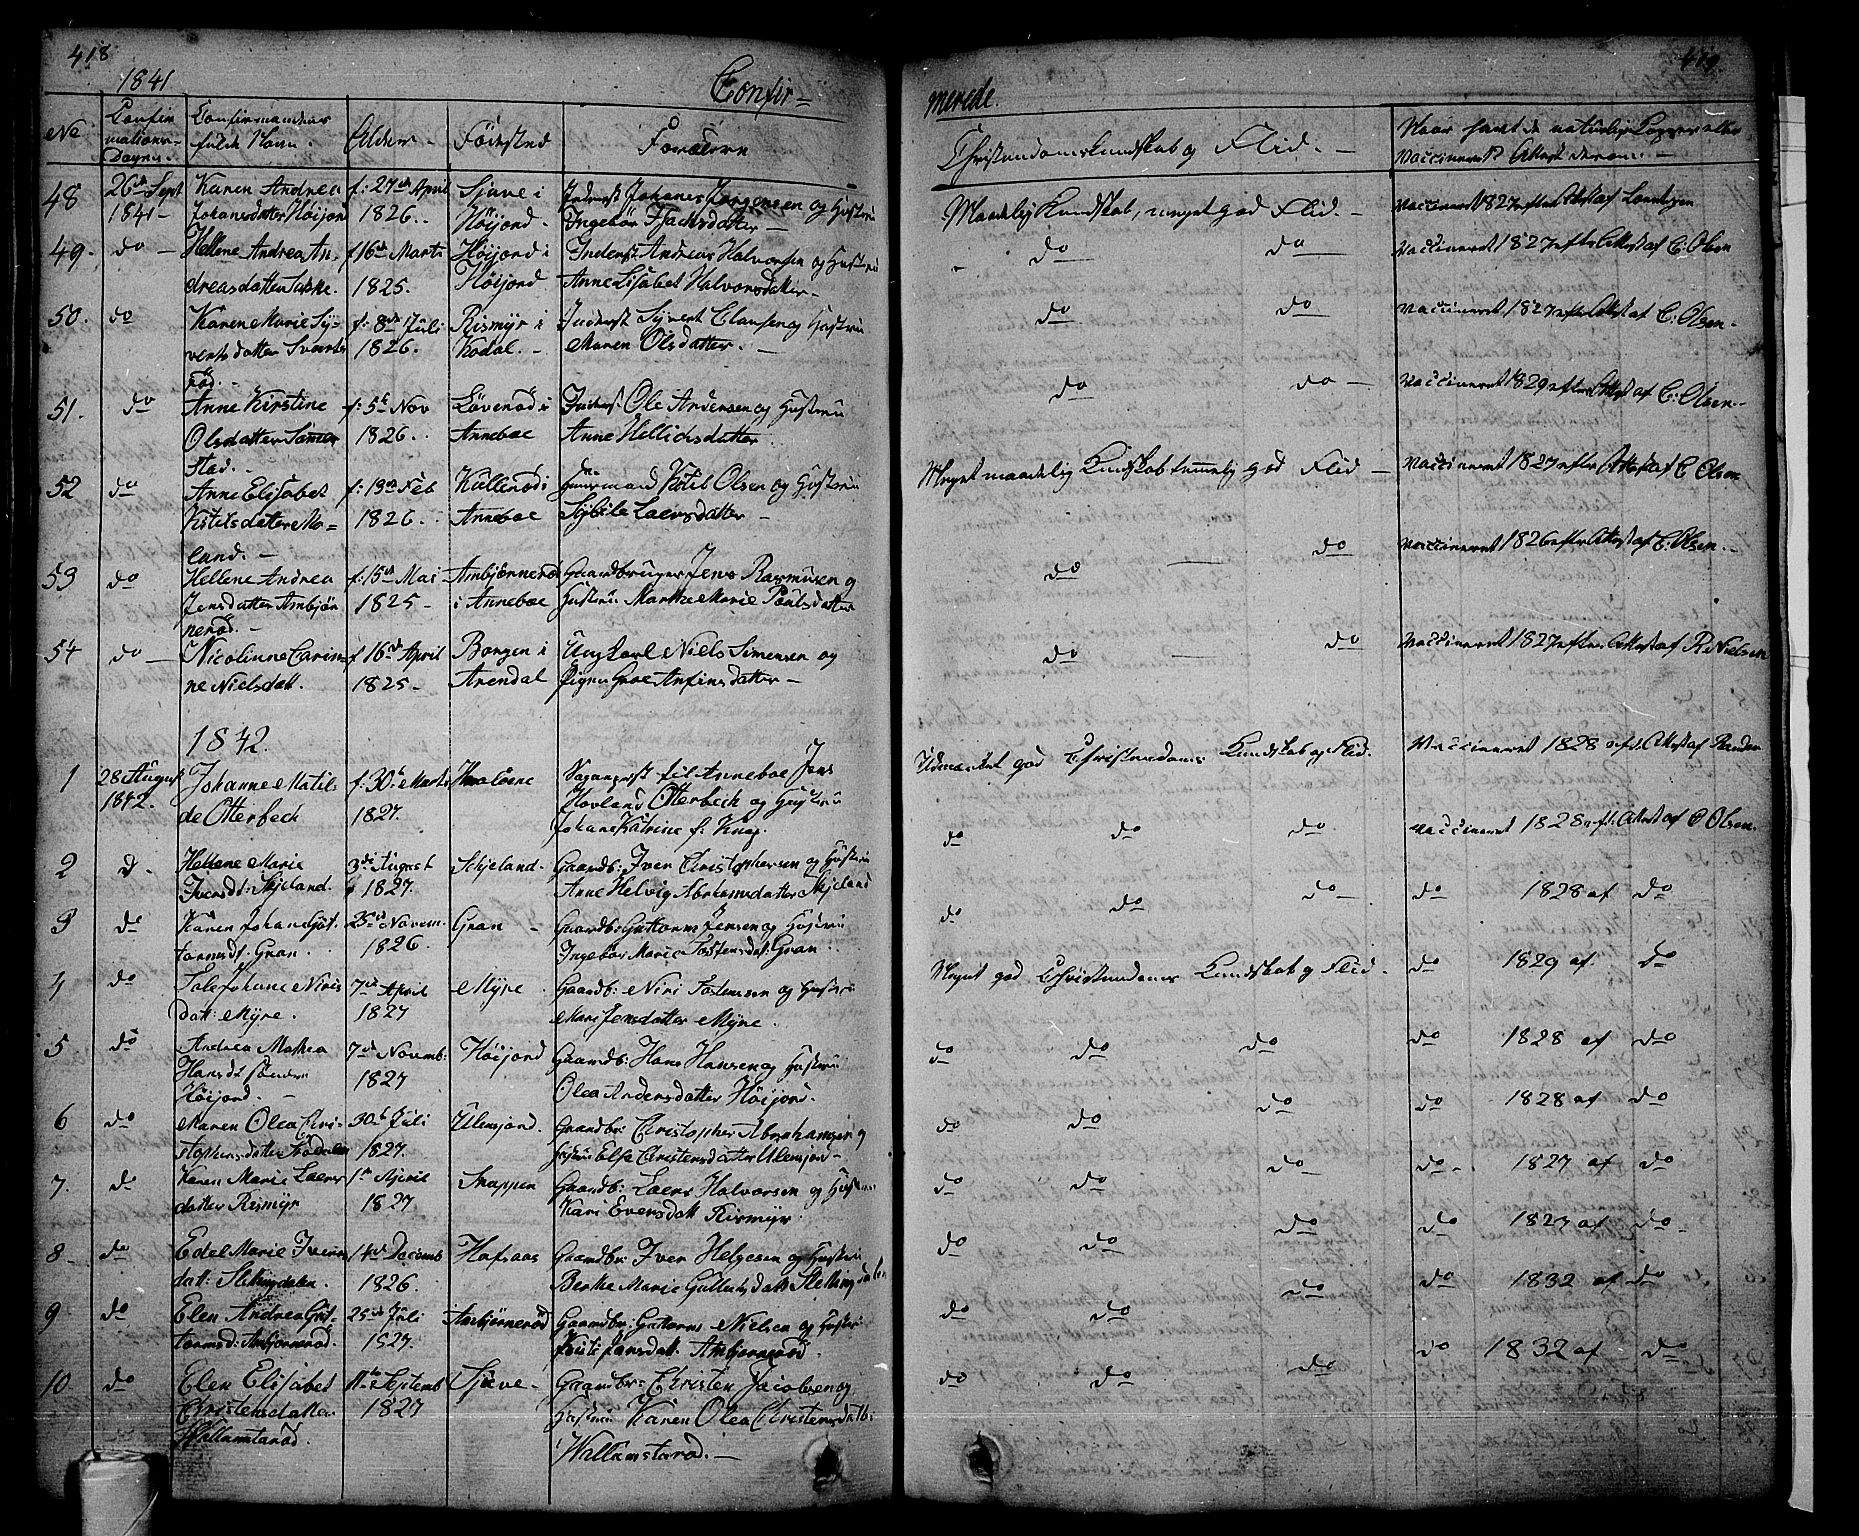 418
1841
Confir=
No
Confir
mations-
Dagen.
Confirmandens
fulde Navn.
Alder.
Födested
Forældre
48
26de Sept
1841-
Karen Andrea
Johansdatter Höijord
f: 27de April
1826.
Sjave i
Höijord.
Inderst Johanes Jørgensen og Hustrue
Ingebör Jacksdatter
49.
do
Hellene Andrea An-
dreasdatter
f 16de Marts
1825.
Höijord i
Höijord
Inderst Andreas Halvorsen og Hustrue
Anne Lisabet Halvorsdatter
50.
do
Karen Marie Sy-
vertsdatter Svarts
röd.
f: 8de Juli
1826.
Rismyr i
Kodal.
Inderst Syvert Clausen og Hustrue
Maren Olsdatter.
51.
do
Anne Kirstine
Olsdatter
stad.
f: 5te Nov
1826.
Lövenöd i
Anneboe
Inderst. Ole Andersen og Hustrue
Anne Hellichsdatter
52
do
Anne Elisabet
Kittilsdatter Mo-
land.
f: 13de Feb
1826.
Kulleröd i
Anneboe
Kittil Olsen og Hustrue
Sybile Laersdatter
53
do
Hellene Andrea
Jensdatter Ambjön
neröd.
f: 15de Mai
1825
Ambjönneröd
i Anneboe
Gaardbruger Jens Rasmusen og
Hustrue Marthe Marie Poulsdatter
54
do
Nicolinne Carin-
ne Nielsdatt.
f 16de April
1825
Borgen i
Arendal
Ungkarl Niels Simensen og
Pigen Groe Anfinsdatter
1842.
1
28 August
1842.
Johanne Matil
de Otterbech
f. 30te Marts
1827.
til Anneboe Jens
Hovland Otterbech og Hustrue
Johane Katrine f: Knap.
2
d.
Hellene Marie
Iversdt: Skjeland.
3die August
1827.
Skjeland.
Gaardb: Iver Christophersen og Hustrue
Anne Helvig Abrahamsdatter Skjeland
3
do
Karen Johan Gut
tormsdt: Gran.
25de Novem.
1826.
Gran
Gaardb: Guttorm Jensen og Hustrue
Ingebör Marie Tostensdat: Gran.
4
do
Johane Niris
datt: Myre.
7de April
1827
Myre
Gaardb: Niri Tostensen og Hustrue
Mari Jensdatter Myre.
5
do
Andrea Mathea
Hansdt
Höijord.
7de Novemb:
1827
Höijord
Gaardb: Hans Hansen og Hustrue
Olea Andersdatter Höijord.
6
do
Maren Olea Chri-
stophersdatter
30te Juli
1827.
Ulensjord.
Gaardb: Christopher Abrahamsen og
Hustrue Else Christensdatter Ulensjord
7.
do
Karen Marie Laers
datter Rismyr
1te April
1827
Snappen
Gaardb: Laers Halvorsen og Hustrue
Kari Eversdatt Rismyr.
8
do
Edel Marie Ivers
datt: Stettingdalen
14de Decemb
1826
Hafsaas
Gaardbr: Iver Helgesen og Hustrue
Berthe Marie Gulliksdatt Stettingdalen
9
do
Elen Andrea Gut-
tormsd: Ambjörneröd.
25de Juli
1827.
Ambjörneröd
Gaardbr: Guttorm Nielsen og Hustrue
Jansdatt. Ambjörneröd.
10
do
Elen Elisabet
Christensdatter
Wallamsteröd.
11te Septemb
1827
Sjave
Gaardbr: Christen Jacobsen og
Hustrue Karen Olea Christensdatt:
Wallumsteröd.
419.
merede.
Christendomskundskab og Flid.
Naar havt de naturlige Kopper eller
Vaccineret? Attest derom.
Maadelig Kundskab, meget god Flid.
Vaccineret 1827 efter Attest af
do do
Vaccineret 1827 efter Attest af C: Olsen
do do
Vaccineret 1827 efter Attest af C: Olsen.
do do
Vaccineret 1829 efter Attest af C: Olsen.
Meget maadelig Kundskab temmelig god Flid
Vaccineret 1827 efter Attest af C Olsen
do do
Vaccineret 1826 efter Attest af C: Olsen.
do do
Vaccineret 1827 efter Attest af R: Nielsen
Udmærket god Christendoms Kundskab og Flid.
Vaccineret 1828 eft: Attest af Randen
do do do
Vaccineret 1828 eft: Attest af C Olsen.
do do do
do 1828 af do
Meget god Christendoms Kundskab og Flid.
do 1829 af. do
do do do
do 1828 af do
do do do
do 1828 af do
do do do
do 1827 af do
do do do
do 1827 af do
do do do
do 1832 af do
do do do
do 1832 af do